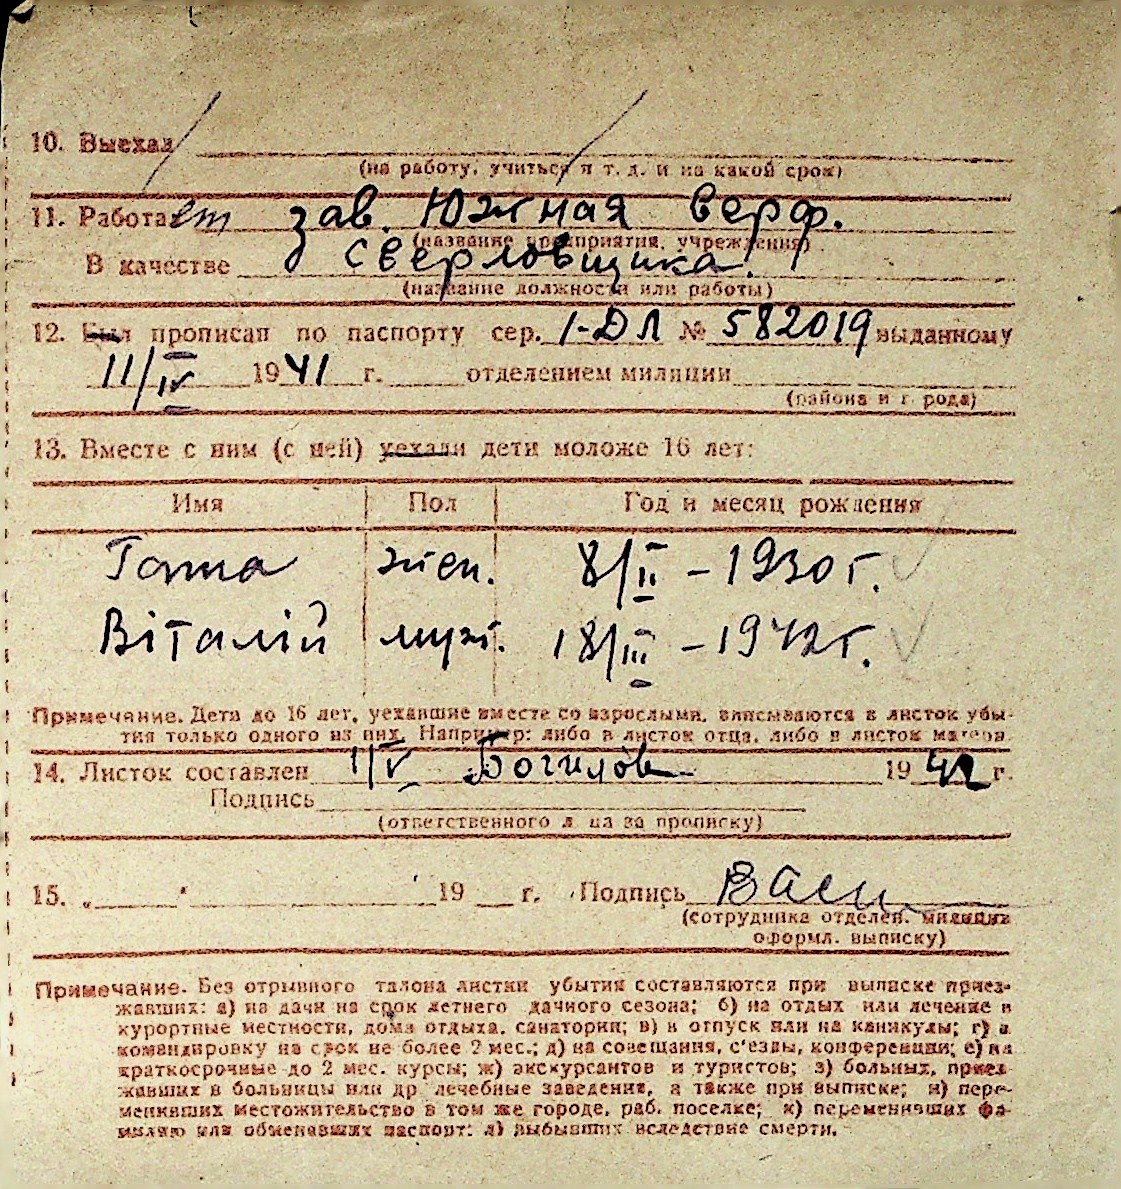 10. Выехал
(на работу, учиться и т. д. и на какой срок)
11. Работает зав. Южная верф.
(название предприятия, учреждения)
В качестве сверловщика.
(название должности или работы)
12. Был прописан по паспорту сер. 1-ДЛ № 582019 выданному
11/IV 1941 г. отделением милиции
(района и города)
13. Вместе с ним (с ней) уехали дети моложе 16 лет:
Имя Пол Год и месяц рождения
Ганна жен. 8/II – 1930 г.
Віталій муж. 18/III – 1942 г.
Примечание. Дети до 16 лет, уехавшие вместе со взрослыми, вписываются в листок убы-
тия только одного из них. Например: либо в листок отца, либо в листок матери.
14. Листок составлен 1/IV 1942 г.
Подпись
(ответственного лица за прописку)
15. „ " 19 г. Подпись
(сотрудника отделен. милиции
оформл. выписку)
Примечание. Без отрывного талона листки убытия составляются при выписке приез-
жавших: а) на дачи на срок летнего дачного сезона; б) на отдых или лечение в
курортные местности, дома отдыха, санатории; в) в отпуск или на каникулы; г) в
командировку на срок не более 2 мес.; д) на совещания, с'езды, конференции; е) на
краткосрочные до 2 мес. курсы; ж) экскурсантов и туристов; з) больных, приез-
жавших в больницы или др. лечебные заведения, а также при выписке; и) пере-
менивших местожительство в том же городе, раб. поселке; к) переменивших фа-
милию или обменявших паспорт; л) выбывших вследствие смерти.